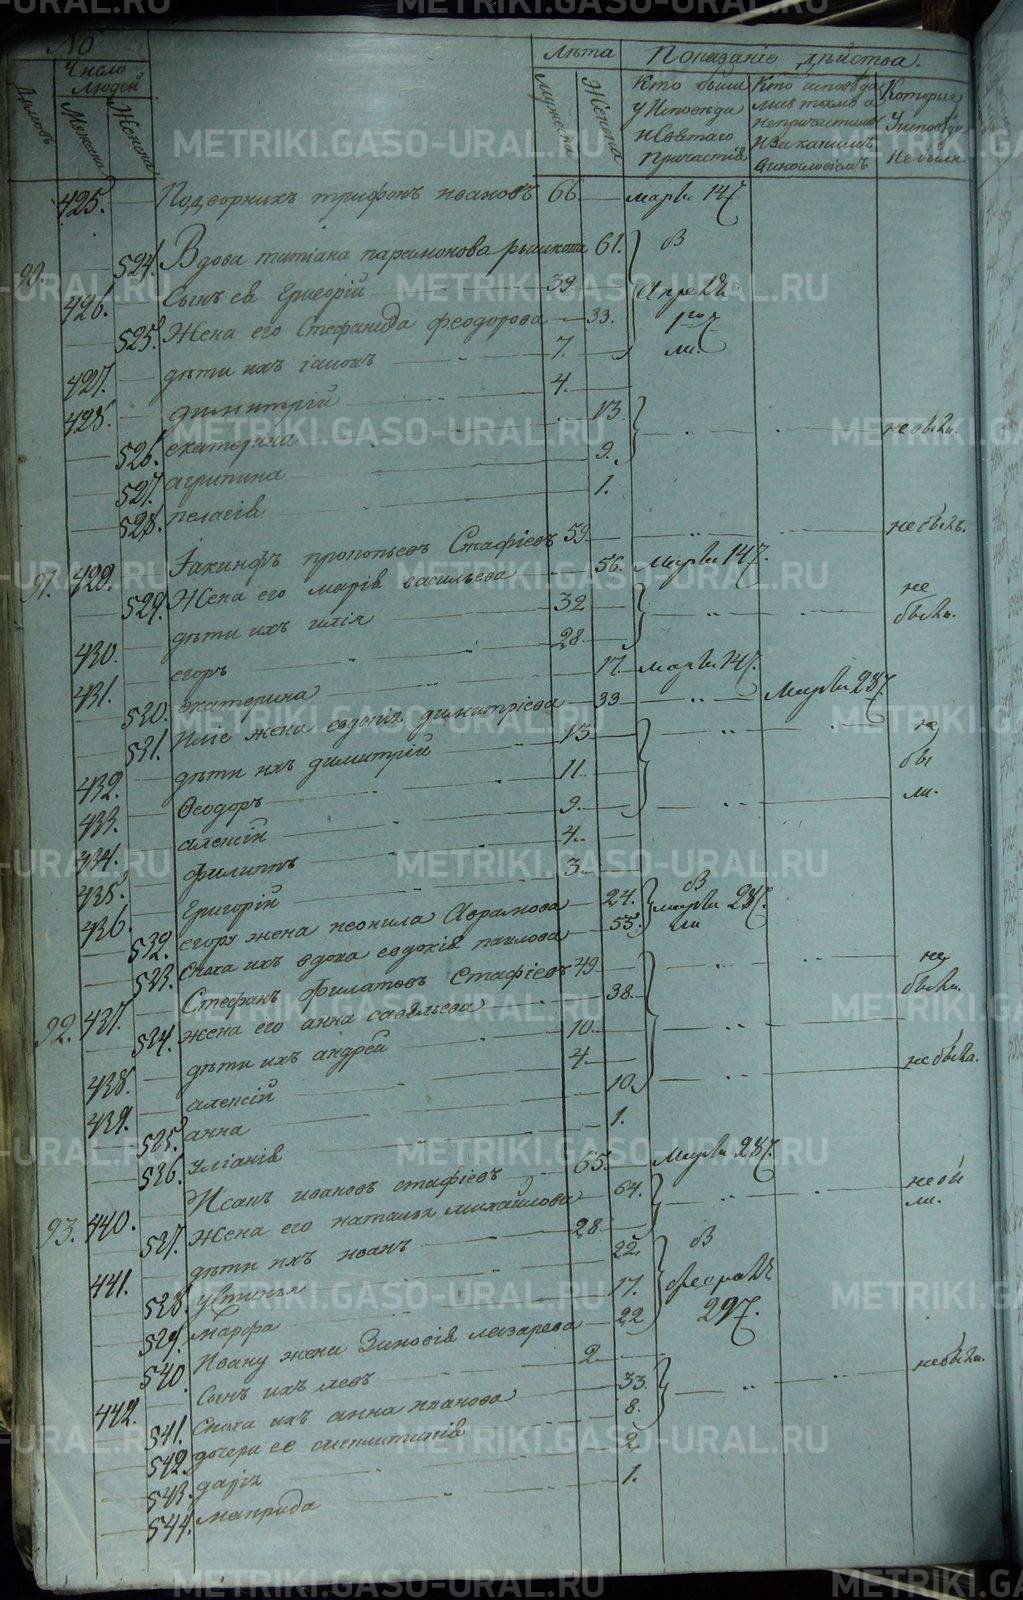 № Лѣта Показаніе дѣйства.
Домовъ Число людей Мужеска Женска Мужеска Женска Кто были у Исповѣди и Святаго Причастія Кто исповѣдались токмо а не причастились и за какимъ винословіемъ Которые у исповѣди не были
425. Подворникъ трифонъ ивановъ 66
90. 524. Вдова татіана парамонова 61. В
426. Сынъ ея Григорій 39
525. Жена его Стефанида феодорова 33.
427. дѣти ихъ 7.
428. димитрій 4.
526. екатерина 13 не были.
527. агрипина 9.
528. пелагія 1.
91. 429. Іакинфъ прокопьевъ Стафіевъ 59 не былъ.
529. Жена его марія васильева 56.
430. дѣти ихъ илія 32 не были.
431. егоръ 28
530. екатерина 17.
531. Иліе жена евдокія димитріева 33
432. дѣти ихъ димитрій 13 не бы ли.
433. Феодоръ 11
434. алексій 9.
435. филиппъ 4.
436. Григорій 3.
532. егору жена неонила Аврамова 24. В
533. Сноха ихъ вдова евдокія павлова 55.
92. 437. Стефанъ Филатовъ Стафіевъ 49 не были.
534. жена его анна савельева 38.
438. дѣти ихъ андрей 10.
439. алексій 4. не была.
535. анна 10.
536. Уліанія 1.
93. 440. ивановъ стафіевъ 65.
537. Жена его наталья михайлова 64. не бы ли.
441. дѣти ихъ иванъ 28
538. устинья 22. В
539. марфа 17.
540. Ивану жена Зиновія лазарева 22
442. Сынъ ихъ левъ 2 не были.
541. Сноха ихъ анна иванова 33.
542. дочери ее 8.
543. дарія 2
544. матрида 1.
METRIKI.GASO-URAL.RU